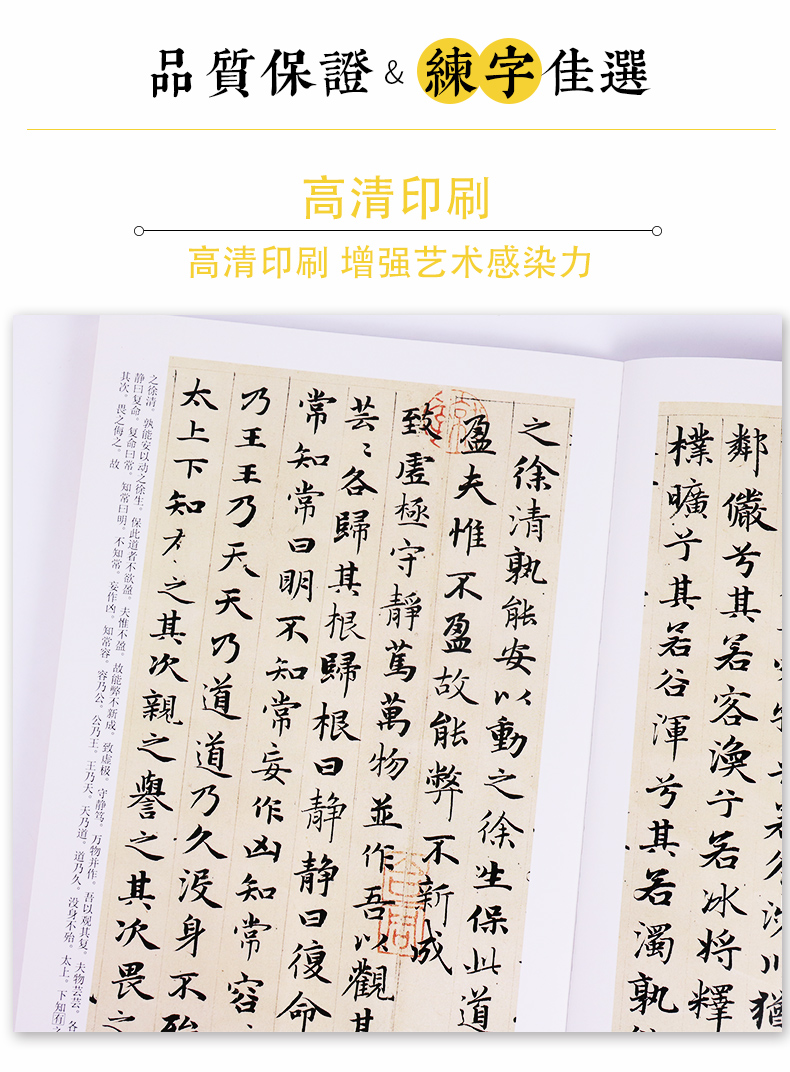 品質保證&練字佳選
高清印刷
高清印刷 增强艺术感染力
鄰儼兮其若客渙兮若冰將釋
樸曠兮其若谷渾兮其若濁孰
之徐清孰能安以動之徐生保此道
盈夫惟不盈故能弊不新成
致虛極守靜篤萬物並作吾以觀其
芸〻各歸其根歸根曰静静曰復命
常知常曰明不知常妄作凶知常容
乃王王乃天天乃道道乃久没身不殆
太上下知有之其次親之譽之其次畏之
之徐清。孰能安以动之徐生。保此道者不欲盈。夫惟不盈。故能弊不新成。致虚极。守静笃。万物并作。吾以观其复。夫物芸芸。各
静曰复命。复命曰常。知常曰明。不知常。妄作凶。知常容。容乃公。公乃王。王乃天。天乃道。道乃久。没身不殆。太上。下知有
其次。畏之侮之。故